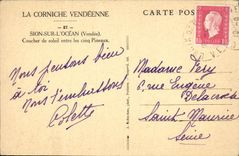 LA CORNICHE VENDÉENNE
CARTE POSTALE
87
SION-SUR-L'OCÉAN (Vendée).
Coucher de soleil entre les cinq Pineaux.
Nous pensons bien
à toi
Nous t'embrassons
Colette
Madame Féry
6, rue Eugène
Delacroix
Saint Maurice
Seine